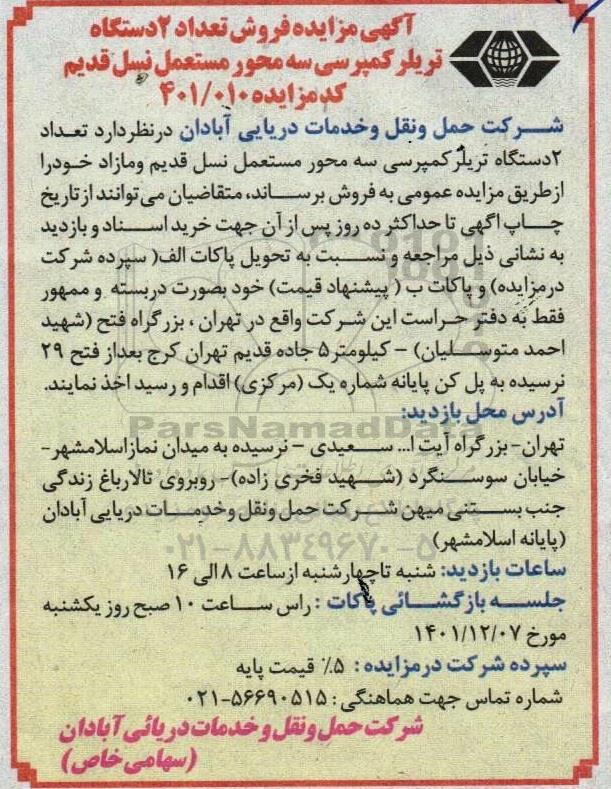 آگهی مزایده فروش تعداد ۲ دستگاه
تریلر کمپرسی سه محور مستعمل نسل قدیم
کد مزایده ۴۰۱/۰۱۰
شرکت حمل ونقل وخدمات دریایی آبادان درنظردارد تعداد
۲دستگاه تریلر کمپرسی سه محور مستعمل نسل قدیم ومازاد خودرا
ازطریق مزایده عمومی به فروش برساند، متقاضیان می توانند از تاریخ
چاپ اگهی تا حداکثر ده روز پس از آن جهت خرید اسناد و بازدید
به نشانی ذیل مراجعه و نسبت به تحویل پاکات الف( سپرده شرکت
درمزایده) و پاکات ب ( پیشنهاد قیمت) خود بصورت دربسته و ممهور
فقط به دفتر حراست این شرکت واقع در تهران ، بزرگراه فتح (شهید
احمد متوسلیان) – کیلومتر۵ جاده قدیم تهران کرج بعداز فتح ۲۹
نرسیده به پل کن پایانه شماره یک (مرکزی) اقدام و رسید اخذ نمایند.
آدرس محل بازدید:
ParsNamadData
تهران-بزرگراه آیت ا... سعیدی – نرسیده به میدان نمازاسلامشهر-
خیابان سوسنگرد (شهید فخری زاده)- روبروی تالارباغ زندگی
جنب بستنی میهن شرکت حمل ونقل وخدمات دریایی آبادان
(پایانه اسلامشهر)
۰۲۱-۸۸۳۴۹۶۷۰-۵
ساعات بازدید: شنبه تاچهارشنبه ازساعت ۸ الی ۱۶
جلسه بازگشائی پاکات : راس ساعت ۱۰ صبح روز یکشنبه
مورخ ۱۴۰۱/۱۲/۰۷
سپرده شرکت درمزایده : ۵٪ قیمت پایه
شماره تماس جهت هماهنگی : ۰۲۱-۵۶۶۹۰۵۱۵
شرکت حمل ونقل و خدمات دریائی آبادان
(سهامی خاص)